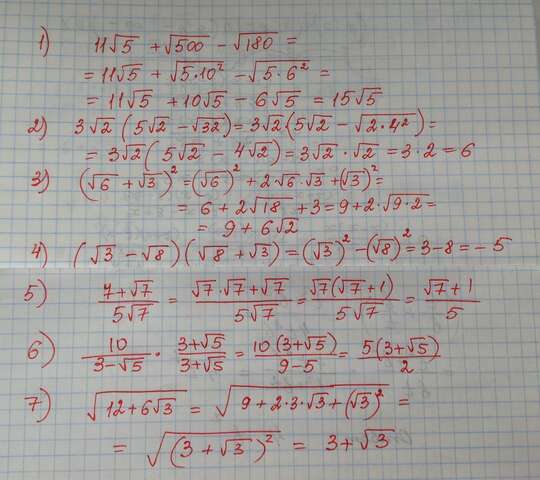 1) 11√5 + √500 − √180 =
= 11√5 + √5·10² − √5·6² =
= 11√5 + 10√5 − 6√5 = 15√5
2) 3√2 (5√2 − √32) = 3√2 (5√2 − √2·4²) =
= 3√2 (5√2 − 4√2) = 3√2 · √2 = 3·2 = 6
3) (√6 + √3)² = (√6)² + 2√6·√3 + (√3)² =
= 6 + 2√18 + 3 = 9 + 2·√9·2 =
= 9 + 6√2
4) (√3 − √8)(√8 + √3) = (√3)² − (√8)² = 3 − 8 = −5
5) (7+√7)/(5√7) = (√7·√7+√7)/(5√7) = (√7(√7+1))/(5√7) = (√7+1)/5
6) 10/(3−√5) · (3+√5)/(3+√5) = (10(3+√5))/(9−5) = (5(3+√5))/2
7) √(12+6√3) = √(9+2·3·√3+(√3)²) =
= √((3+√3)²) = 3+√3